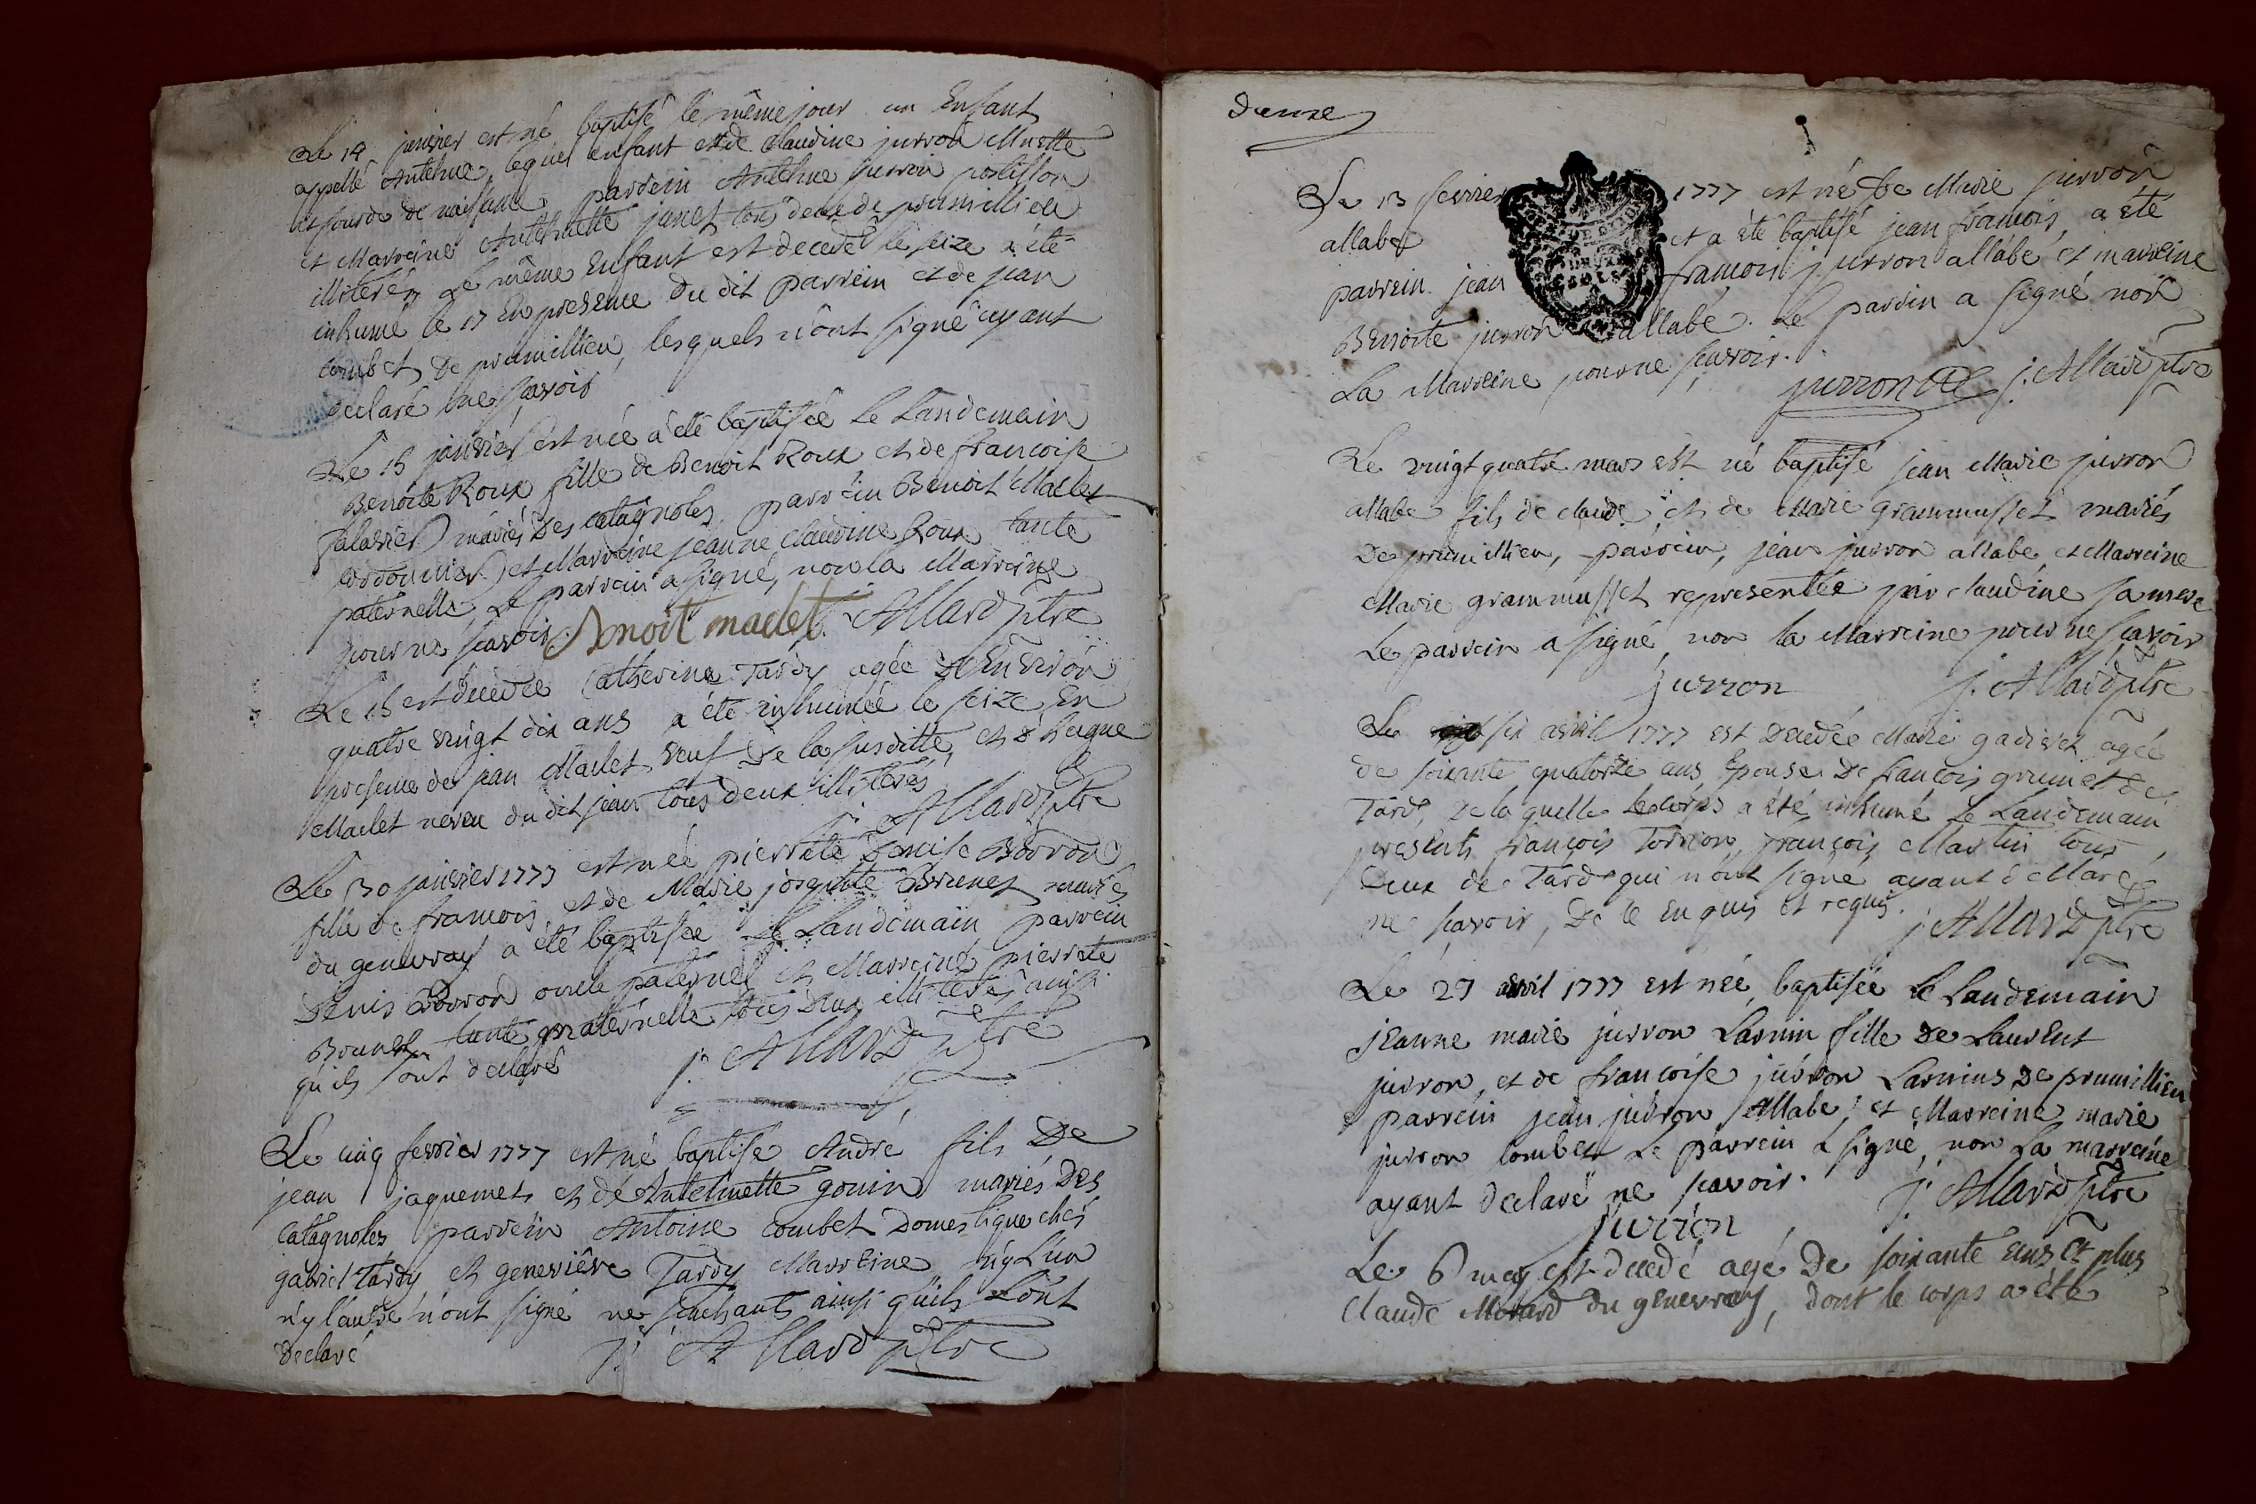 Le 14 janvier est né baptisé le même jour un Enfant
appellé Antelme, lequel enfant est de Claudine jurron Muette
et sourde de naissance, parrein Antelme jurron postillon
et Marreine Antelmette janet tous deux de prumillieu
illiterés, Le même Enfant est decedé le seize a été
inhumé le 17 En presence du dit parrein et de jean
combet, De prumillieu, lesquels n'ont signé ayant
declaré ne sçavoir
Le 15 janvier est née a été baptisée le Landemain
Benoite Roux fille de Benoit Roux et de francoise
mariés Des catagnoles, parrein Benoit Maclet
cordonnier et Marreine jeanne claudine Roux tante
paternelle, Le parrein a signé, non la Marreine
pour ne sçavoir. Benoit maclet j. Allard ptre
Le 15 est decedée Catherine Tardy agée D'Environ
quatre vingt dix ans a été inhumée le seize En
presence de jean Maclet veuf De la susditte, et d'
Maclet neveu du dit jean tous deux illiterés
j. Allard ptre
Le 30 janvier 1777 est née pierrete Denise Borron
fille de francois et de Marie josephte Brunet mariés
du genevray a été baptisée Le Landemain parrein
Denis Borron oncle paternel et Marreine pierrete
Brunet tante maternelle tous Deux illiterés ainsi
qu'ils l'ont declaré j. Allard ptre
Le cinq fevrier 1777 est né baptisé André fils De
jean jaquemet et de Antelmette gouin mariés Des
Catagnoles parrein Antoine combet Domestique chés
gabriel Tardy et geneviêve Tardy Marreine n'y L'un
n'y l'autre n'ont signé ne sachants ainsi qu'ils L'ont
declaré j. Allard ptre
Le 13 fevrier 1777 est né de Marie jurron
allabe et a été baptisé jean francois, a été
parrein jean francois jurron allabé et marreine
Benoite jurron allabé. Le parrein a signé non
La Marreine pour ne sçavoir.
jurron j. Allard ptre
Le vingt quatre mars est né baptisé jean Marie jurron
allabe fils de claude, et de Marie grammusset mariés
De prumillieu, parrein, jean jurron allabe, et Marreine
Marie grammusset representée par claudine sa mere
Le parrein a signé non la Marreine pour ne sçavoir
jurron j. Allard ptre
Le six avril 1777 est Decedée Marie gadivet agée
de soixante quatorze ans Epouse De francois grumet de
Tard, De laquelle Le corps a été inhumé Le Landemain
presents françois Torrion, françois Martin tous
Deux de Tard qui n'ont signé ayant declaré
ne sçavoir, De ce Enquis et requis. j. Allard ptre
Le 27 avril 1777 est née baptisée Le Landemain
jEanne marie jurron Larnin fille De LaurEnt
jurron, et de francoise jurron Larnins De prumillieu
parrein jean jurron Allabe, et Marreine marie
jurron combet Le parrein a signé, non La marreine
ayant declaré ne sçavoir. j. Allard ptre
jurron
Le 6 may est decedé agé De soixante Ens et plus
Claude Morard du genevray, dont le corps a été